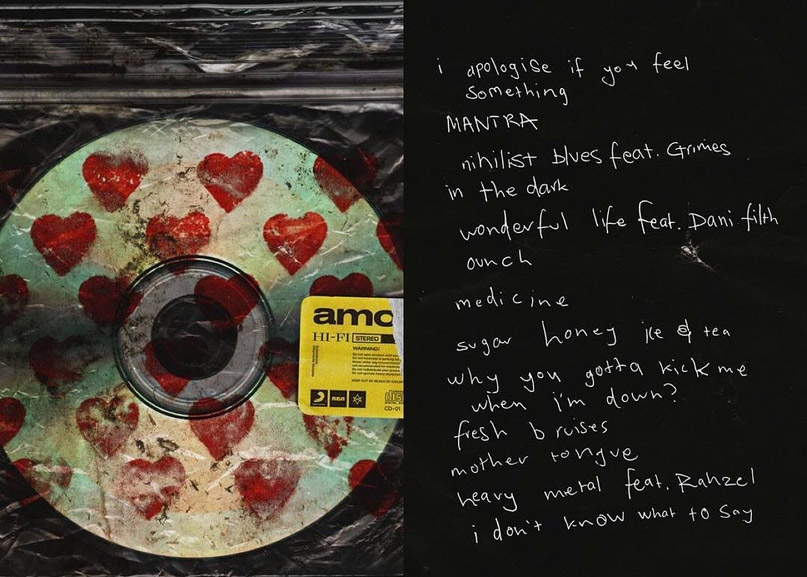 amo
HI-FI STEREO
WARNING:
RCA
CD-01
i apologise if you feel
something
MANTRA
nihilist blues feat. Grimes
in the dark
wonderful life feat. Dani filth
ounch
medicine
sugar honey ice & tea
why you gotta kick me
when i'm down?
fresh bruises
mother tongue
heavy metal feat. Rahzel
i don't know what to say